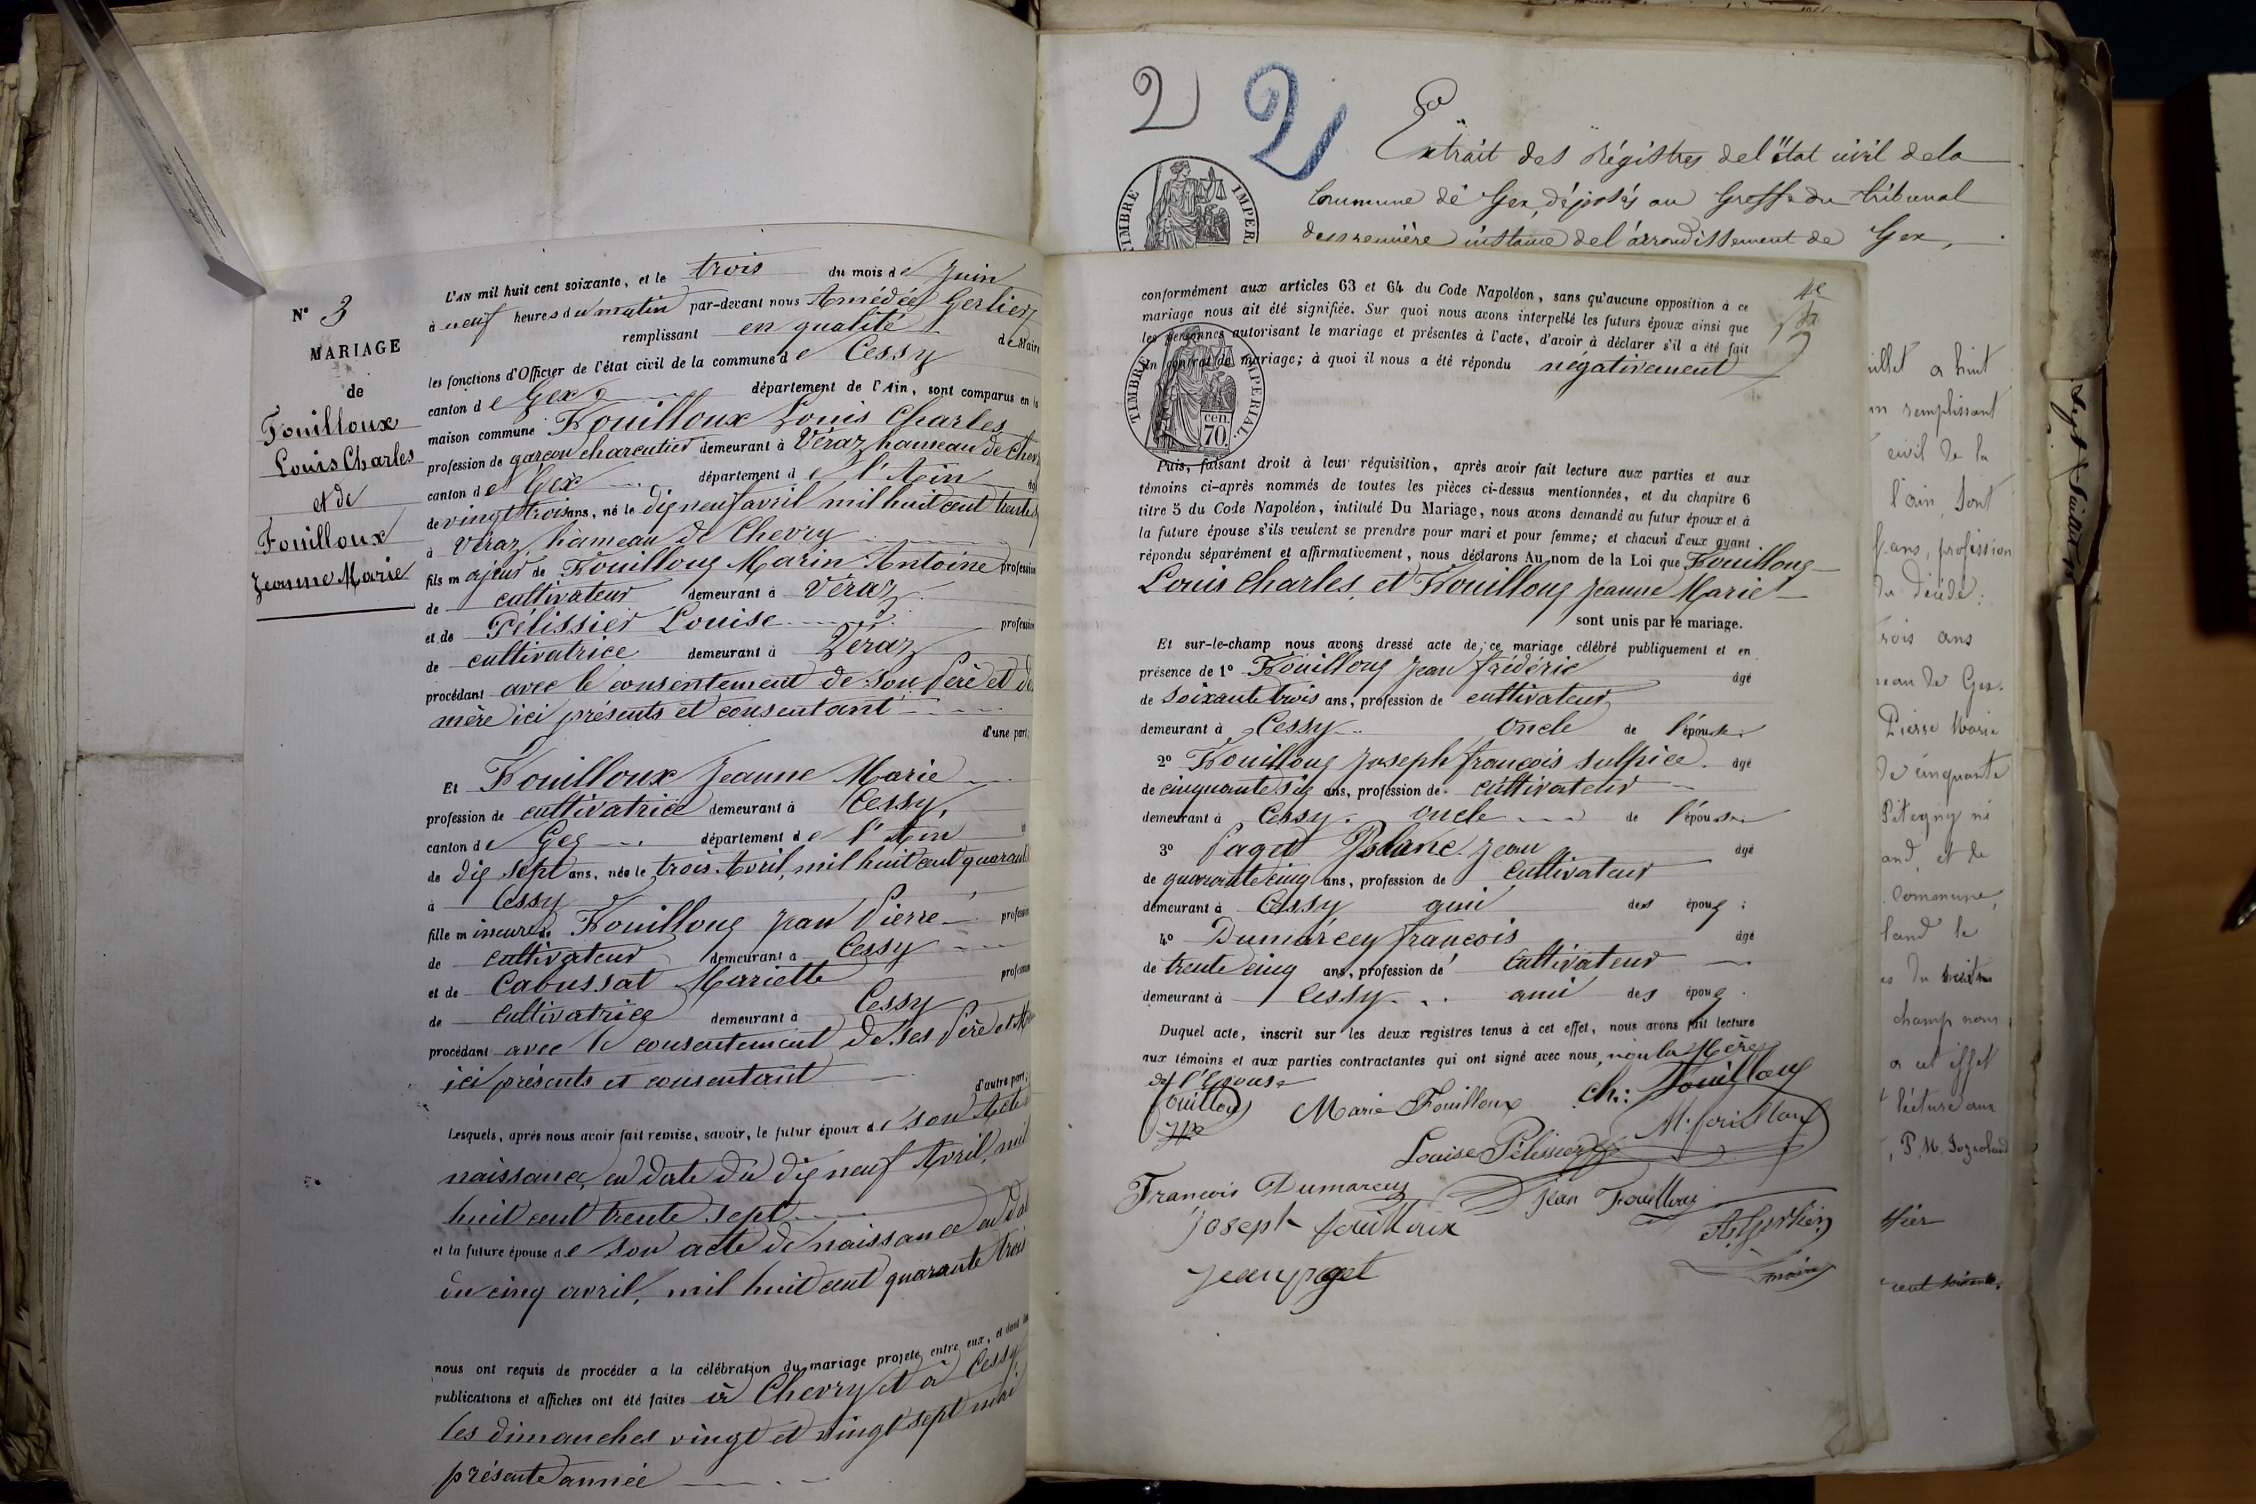 N° 3
MARIAGE
de
Fouilloux
Louis Charles
et de
Fouilloux
Jeanne Marie
L'AN mil huit cent soixante, et le trois du mois de Juin
à neuf heures du matin par-devant nous Amédée Gerlier
remplissant en qualité de Maire
les fonctions d'Officier de l'état civil de la commune de Cessy
canton de Gex département de l'Ain, sont comparus en la
maison commune Fouilloux Louis Charles
profession de garçon charcutier demeurant à Véraz hameau de Chev
canton de Gex département de l'Ain
de vingt trois ans, né le dix neuf avril mil huit cent trente
à Véraz, hameau de Chevry
fils majeur de Fouilloux Marin Antoine profession
de cultivateur demeurant à Véraz
et de Pélissier Louise profession
de cultivatrice demeurant à Véraz
procédant avec le consentement de son Père et de
mère ici présents et consentant
d'une part;
Et Fouilloux Jeanne Marie
profession de cultivatrice demeurant à Cessy,
canton de Gex département de l'Ain
de dix sept ans, née le trois Avril, mil huit cent quarante
à Cessy
fille mineure de Fouilloux Jean Pierre profession
de cultivateur demeurant à Cessy
et de Cabussat Mariette profession
de cultivatrice demeurant à Cessy
procédant avec le consentement de ses Père et Mère
ici présents et consentant
d'autre part;
Lesquels, après nous avoir fait remise, savoir, le futur époux de son Acte
naissance, en date du dix neuf Avril, mil
huit cent trente sept
et la future épouse de son acte de naissance en dat
du cinq avril, mil huit cent quarante trois
nous ont requis de procéder a la célébration du mariage projeté entre eux, et dont les
publications et affiches ont été faites à Chevry et à Cessy
les dimanches vingt et vingt sept mai
présente année
2 2
Extrait des Régistres de l'état civil de la
Commune de Gex, déposés au Greffe du tribunal
de première instance de l'arrondissement de Gex,
TIMBRE IMPÉR
conformément aux articles 63 et 64 du Code Napoléon, sans qu'aucune opposition à ce
mariage nous ait été signifiée. Sur quoi nous avons interpellé les futurs époux ainsi que
les personnes autorisant le mariage et présentes à l'acte, d'avoir à déclarer s'il a été fait
un contrat de mariage; à quoi il nous a été répondu négativement
TIMBRE IMPÉRIAL.
cen.
70.
Puis, faisant droit à leur réquisition, après avoir fait lecture aux parties et aux
témoins ci-après nommés de toutes les pièces ci-dessus mentionnées, et du chapitre 6
titre 5 du Code Napoléon, intitulé Du Mariage, nous avons demandé au futur époux et à
la future épouse s'ils veulent se prendre pour mari et pour femme; et chacun d'eux ayant
répondu séparément et affirmativement, nous déclarons Au nom de la Loi que Fouilloux
Louis Charles, et Fouilloux Jeanne Marie
sont unis par le mariage.
Et sur-le-champ nous avons dressé acte de ce mariage célébré publiquement et en
présence de 1° Fouilloux Jean frédéric âgé
de soixante trois ans, profession de cultivateur
demeurant à Cessy oncle de l'épouse
2° Fouilloux Joseph françois sulpice âgé
de cinquante six ans, profession de cultivateur
demeurant à Cessy oncle de l'épouse
3° Paget Blanc Jean âgé
de quarante cinq ans, profession de cultivateur
demeurant à Cessy ami des époux;
4° Dumarcey françois âgé
de trente cinq ans, profession de cultivateur
demeurant à Cessy ami des époux
Duquel acte, inscrit sur les deux registres tenus à cet effet, nous avons fait lecture
aux témoins et aux parties contractantes qui ont signé avec nous, non la Mère
de l'Epouse
fouilloux Marie Fouilloux Ch: Fouilloux
Louise Pélissier M. fouilloux
François Dumarcey Jean Fouilloux
joseph fouilloux A. Gerlier
jean paget maire
uillet a huit
remplissant
civil de la
l'ain, sont
ans, profession
du décédé:
trois ans
eau de Gex.
Pierre Marie
de cinquante
and, et de
Commune,
land le
champ nous
a cet effet
lecture aux